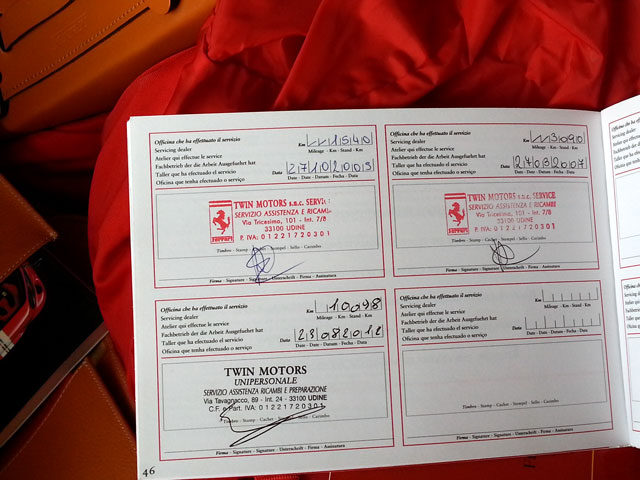 Officina che ha effettuato il servizio
Servicing dealer
Atelier qui effectue le service
Fachbetrieb der die Arbeit Ausgefuehrt hat
Taller que ha efectuado el servicio
Oficina que tenha efectuado o serviço
Km 11540
Mileage - Km - Stand - Km
Data 27102003
Date - Date - Datum - Fecha - Data
TWIN MOTORS s.n.c. SERVI
SERVIZIO ASSISTENZA E RICAMBI
Via Tricesimo, 101 - Int. 7/8
33100 UDINE
P. IVA: 01221720301
Ferrari
Timbro - Stamp - Cachet - Stempel - Sello - Carimbo
Firma - Signature - Signature - Unterschrift - Firma - Assinatura
Officina che ha effettuato il servizio
Servicing dealer
Atelier qui effectue le service
Fachbetrieb der die Arbeit Ausgefuehrt hat
Taller que ha efectuado el servicio
Oficina que tenha efectuado o serviço
Km 3090
Mileage - Km - Stand - Km
Data 27032007
Date - Date - Datum - Fecha - Data
TWIN MOTORS s.n.c. SERVICE
SERVIZIO ASSISTENZA E RICAMBI
Via Tricesimo, 101 - Int. 7/8
33100 UDINE
P. IVA: 01221720301
Ferrari
Timbro - Stamp - Cachet - Stempel - Sello - Carimbo
Firma - Signature - Signature - Unterschrift - Firma - Assinatura
Officina che ha effettuato il servizio
Servicing dealer
Atelier qui effectue le service
Fachbetrieb der die Arbeit Ausgefuehrt hat
Taller que ha efectuado el servicio
Oficina que tenha efectuado o serviço
Km 10098
Mileage - Km - Stand - Km
Data 28082012
Date - Date - Datum - Fecha - Data
TWIN MOTORS
UNIPERSONALE
SERVIZIO ASSISTENZA RICAMBI E PREPARAZIONE
Via Tavagnacco, 89 - int. 24 - 33100 UDINE
C.F. e Part. IVA: 01221720301
Timbro - Stamp - Cachet - Stempel - Sello - Carimbo
Firma - Signature - Signature - Unterschrift - Firma - Assinatura
Officina che ha effettuato il servizio
Servicing dealer
Atelier qui effectue le service
Fachbetrieb der die Arbeit Ausgefuehrt hat
Taller que ha efectuado el servicio
Oficina que tenha efectuado o serviço
Km
Mileage - Km - Stand - Km
Data
Date - Date - Datum - Fecha - Data
Timbro - Stamp - Cachet - Stempel - Sello - Carimbo
Firma - Signature - Signature - Unterschrift - Firma - Assinatura
46